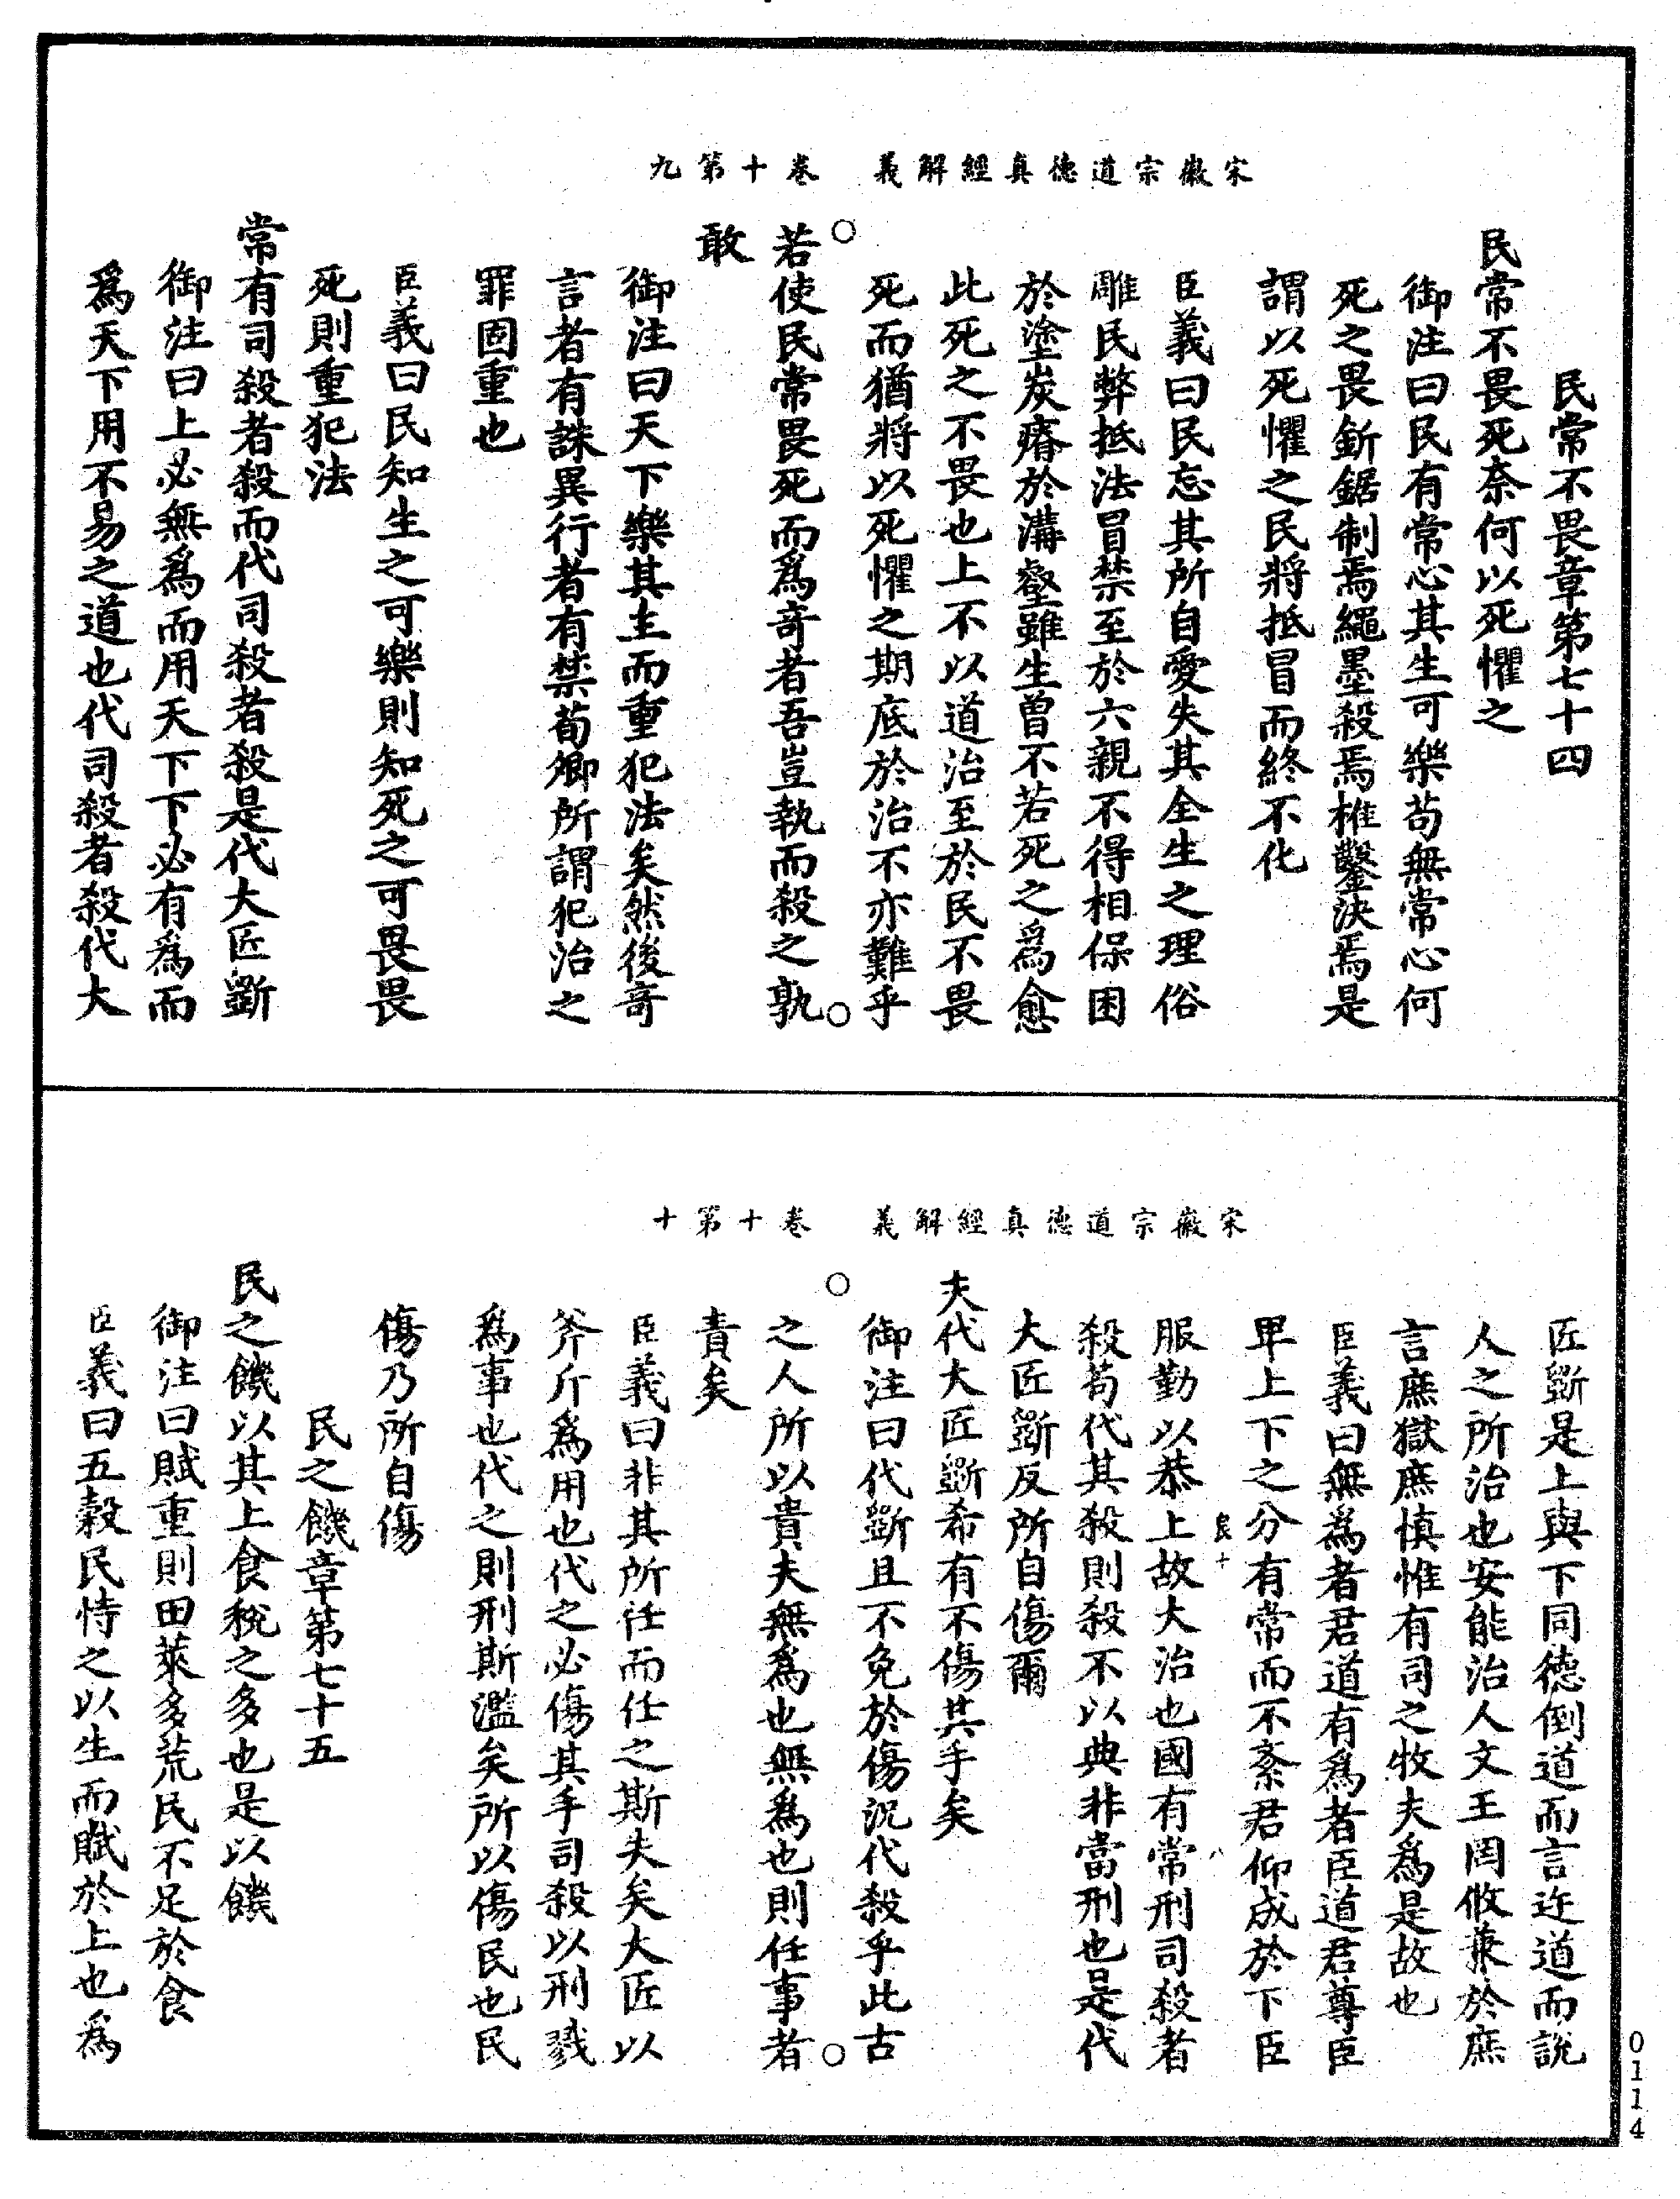 宋徽宗道德真經解義　卷十第九
民常不畏章第七十四
民常不畏死奈何以死懼之
御注曰民有常心其生可樂苟無常心何
死之畏釿鋸制焉繩墨殺焉椎鑿決焉是
謂以死懼之民將抵冒而終不化
臣義曰民忘其所自愛失其全生之理俗
雕民弊抵法冒禁至於六親不得相保困
於塗炭瘠於溝壑雖生曾不若死之爲愈
此死之不畏也上不以道治至於民不畏
死而猶將以死懼之期底於治不亦難乎
若使民常畏死而爲奇者吾豈執而殺之孰
敢
御注曰天下樂其生而重犯法矣然後奇
言者有誅異行者有禁荀卿所謂犯治之
罪固重也
臣義曰民知生之可樂則知死之可畏畏
死則重犯法
常有司殺者殺而代司殺者殺是代大匠斲
御注曰上必無爲而用天下下必有爲而
爲天下用不易之道也代司殺者殺代大
宋徽宗道德真經解義　卷十第十
匠斲是上與下同德倒道而言迕道而說
人之所治也安能治人文王罔攸兼於庶
言庶獄庶慎惟有司之牧夫爲是故也
臣義曰無爲者君道有爲者臣道君尊臣
卑上下之分有常而不紊君仰成於下臣
良十　八
服勤以恭上故大治也國有常刑司殺者
殺苟代其殺則殺不以典非當刑也是代
大匠斲反所自傷爾
夫代大匠斲希有不傷其手矣
御注曰代斲且不免於傷況代殺乎此古
之人所以貴夫無爲也無爲也則任事者
責矣
臣義曰非其所任而任之斯失矣大匠以
斧斤爲用也代之必傷其手司殺以刑戮
爲事也代之則刑斯濫矣所以傷民也民
傷乃所自傷
民之饑章第七十五
民之饑以其上食稅之多也是以饑
御注曰賦重則田萊多荒民不足於食
臣義曰五穀民恃之以生而賦於上也爲
0114